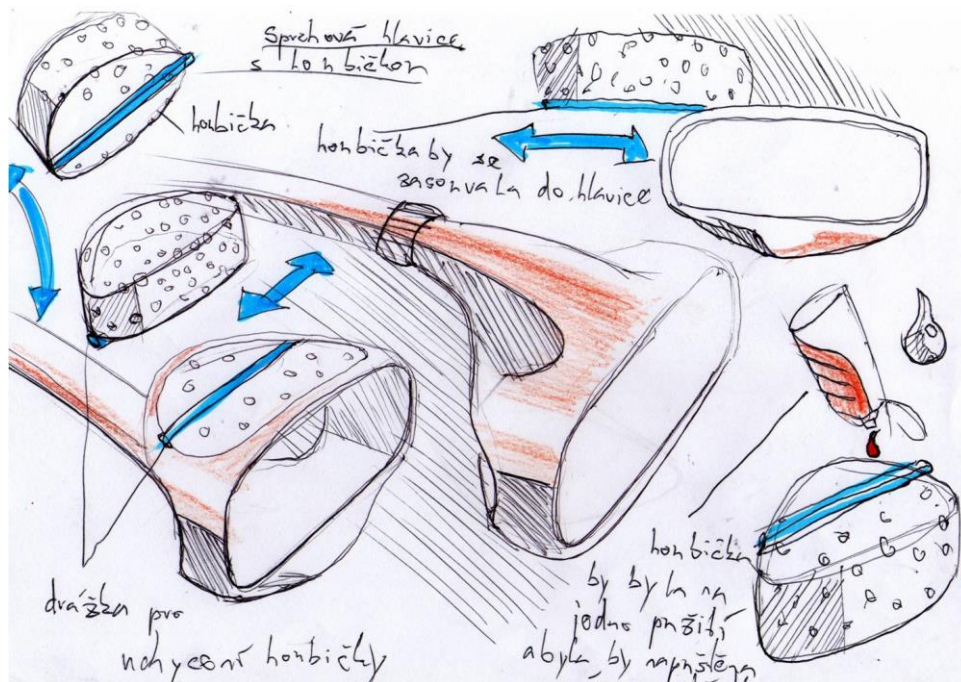 Sprchová hlavice
s houbičkou
houbička
houbička by se
zasouvala do hlavice
drážka pro
uchycení houbičky
houbička
by byla na
jedno použití
a byla by napuštěna